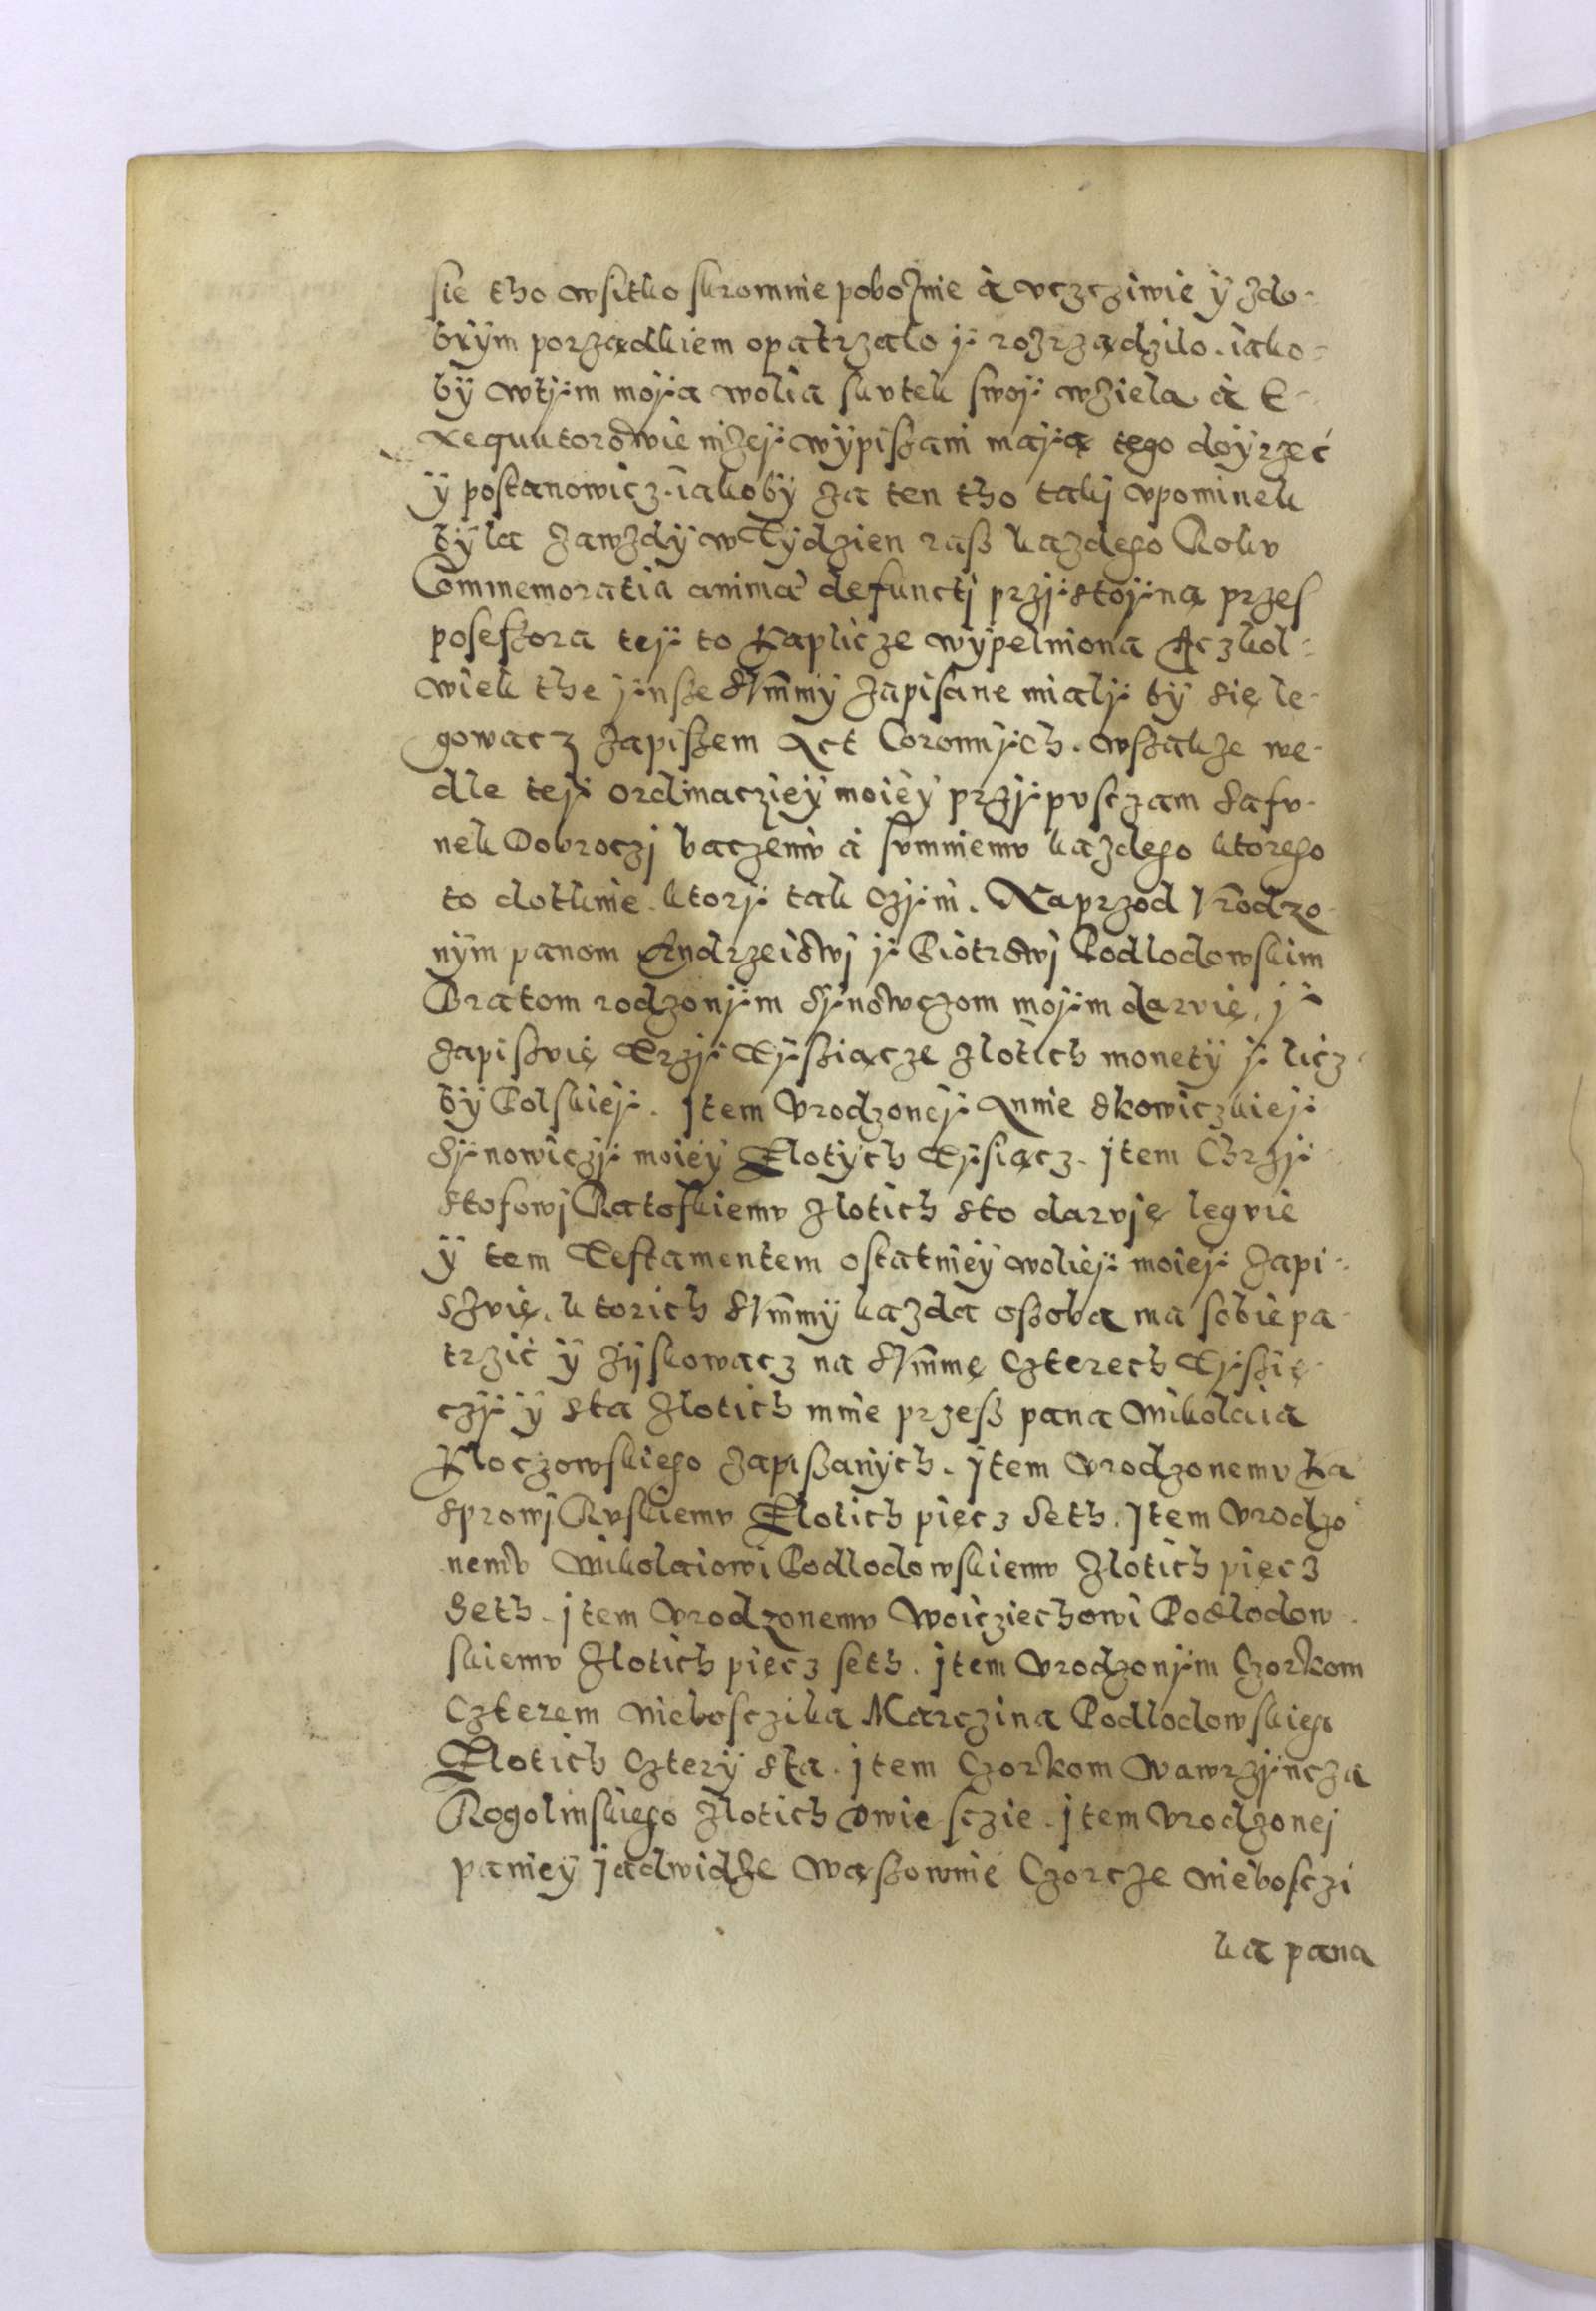 sie tho wsitko skromnie pobożnie à vczcziwie ÿ zdo-
brÿm porządkiem opatrzało ÿ rozrządziło. iako-
bÿ wtÿm moÿa wolia skutek swoÿ wzieła. à E-
xequutorowie niżeÿ wÿpiszani maÿą tego doÿrzeć
ÿ postanowicz. iakobÿ za ten tho takj vpominek
bÿla zawzdÿ w Tÿdzien rasz kazdego Roku
Commemoratia animæ defunctj przÿstoÿna przes
poseszora teÿ to Kaplicze wÿpelniona Aczkol-
wiek the ÿnsze Summÿ zapisane mialÿ bÿ się le-
gowacz zapiszem Act Coronnÿch. wszakze we-
dle teÿ ordinacziej moieÿ przÿpusczam Safu-
nek Dobroczj baczeniu á sumnieniu kazdego ktorego
to dotknie. ktorÿ tak czÿni. Naprzod Vrodzo-
nÿm panom Andrzeiowj ÿ Piotrowj Podlodowskim
Bratom rodzonÿm Sÿnowczom moÿm daruię, ÿ
zapiszuię Trzÿ Tÿsziącze złotich monetÿ ÿ licz-
bÿ Polskieÿ. Jtem Vrodzoneÿ Annie Skowiczkieÿ
Sÿnowiczÿ moieÿ Złotÿch Tÿsiącz. Jtem Chrzÿ-
stofowj Ratoskiemu złotich sto daruję leguię
ÿ tem Testamentem ostatnieÿ wolieÿ moieÿ zapi-
szuię. ktorich Summÿ kazda oszoba ma sobie pa-
trzić ÿ zÿskowacz na Summę czterech Tÿszię-
czÿ ÿ sta złotich mnie przesz pana Mikolaia
Kloczowskiego zapiszanÿch. Jtem Vrodzonemu Ka
sprowj Ruskiemu Złotich pięcz Seth. Jtem Vrodzo
nemu Mikolaiowi Podlodowskiemu złotich pięcz
Seth. Jtem Vrodzonemu Woicziechowi Podlodow-
skiemu Złotich pięcz seth. Jtem Vrodzonÿm Czorkom
Czterem niebosczika Marczina Podlodowskiego
Złotich Czterÿ sta. Jtem Czorkom Wawrzÿncza
Rogolinskiego złotich dwie sczie. Jtem Vrodzonej
panieÿ Jadwidze Wąszownie Czorcze nieboscz­i
ka pana